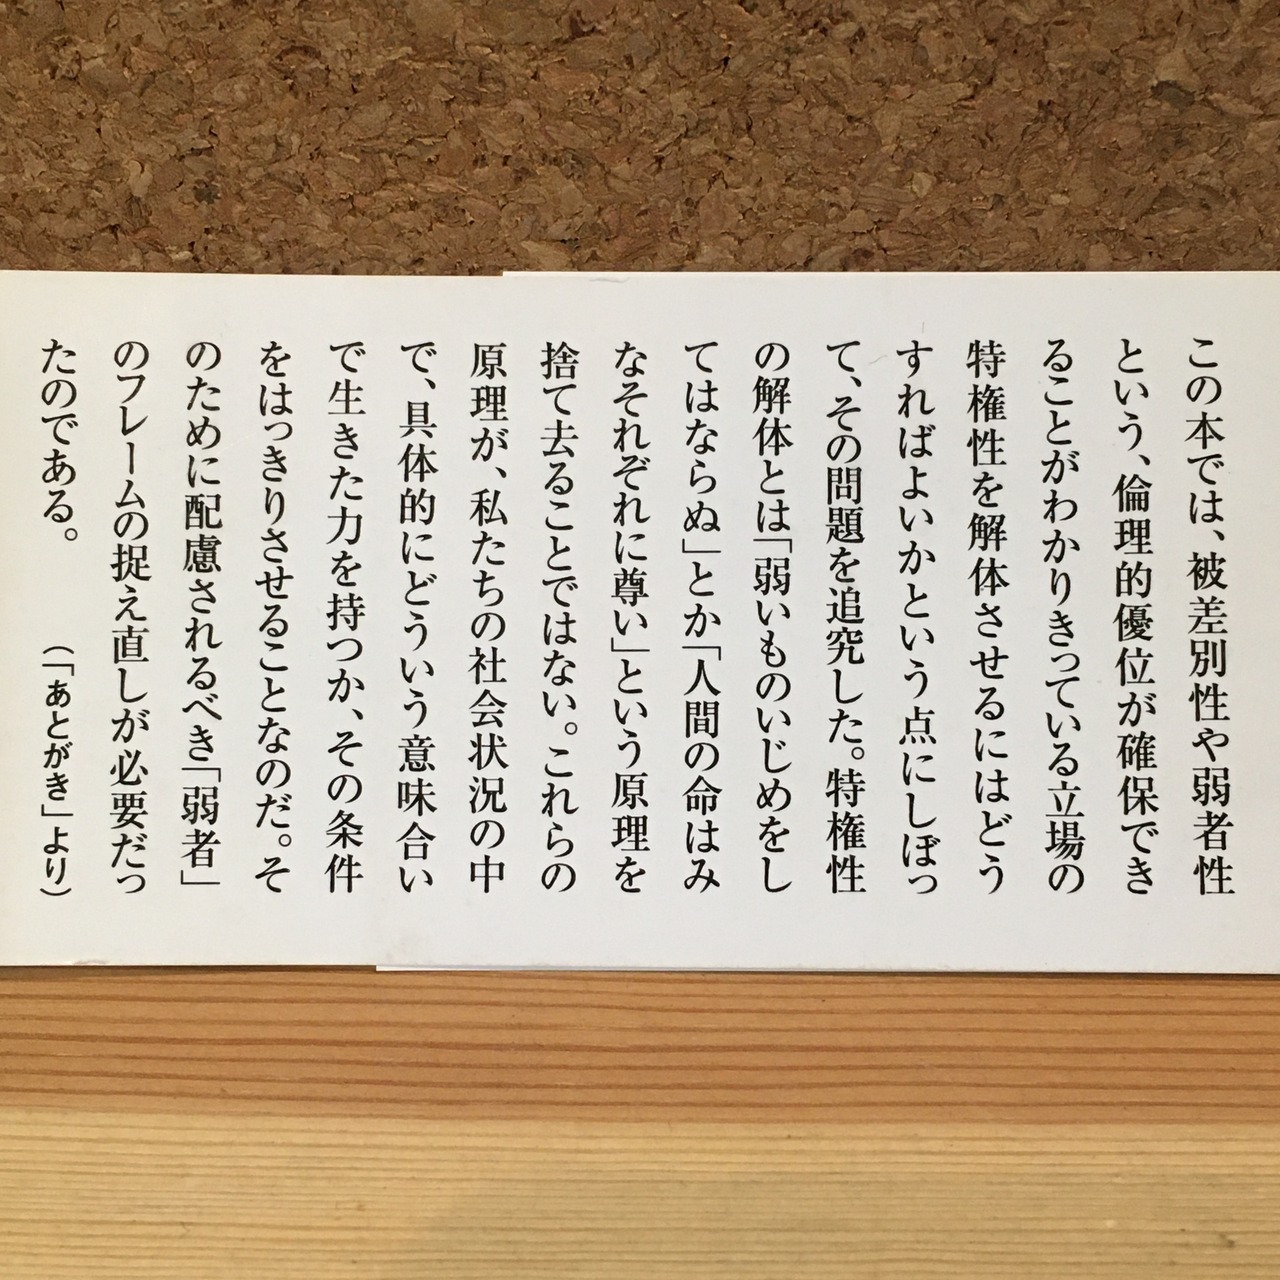 この本では、被差別性や弱者性
という、倫理的優位が確保でき
ることがわかりきっている立場の
特権性を解体させるにはどう
すればよいかという点にしぼっ
て、その問題を追究した。特権性
の解体とは「弱いものいじめをし
てはならぬ」とか「人間の命はみ
なそれぞれに尊い」という原理を
捨て去ることではない。これらの
原理が、私たちの社会状況の中
で、具体的にどういう意味合い
で生きた力を持つか、その条件
をはっきりさせることなのだ。そ
のために配慮されるべき「弱者」
のフレームの捉え直しが必要だっ
たのである。　（「あとがき」より）